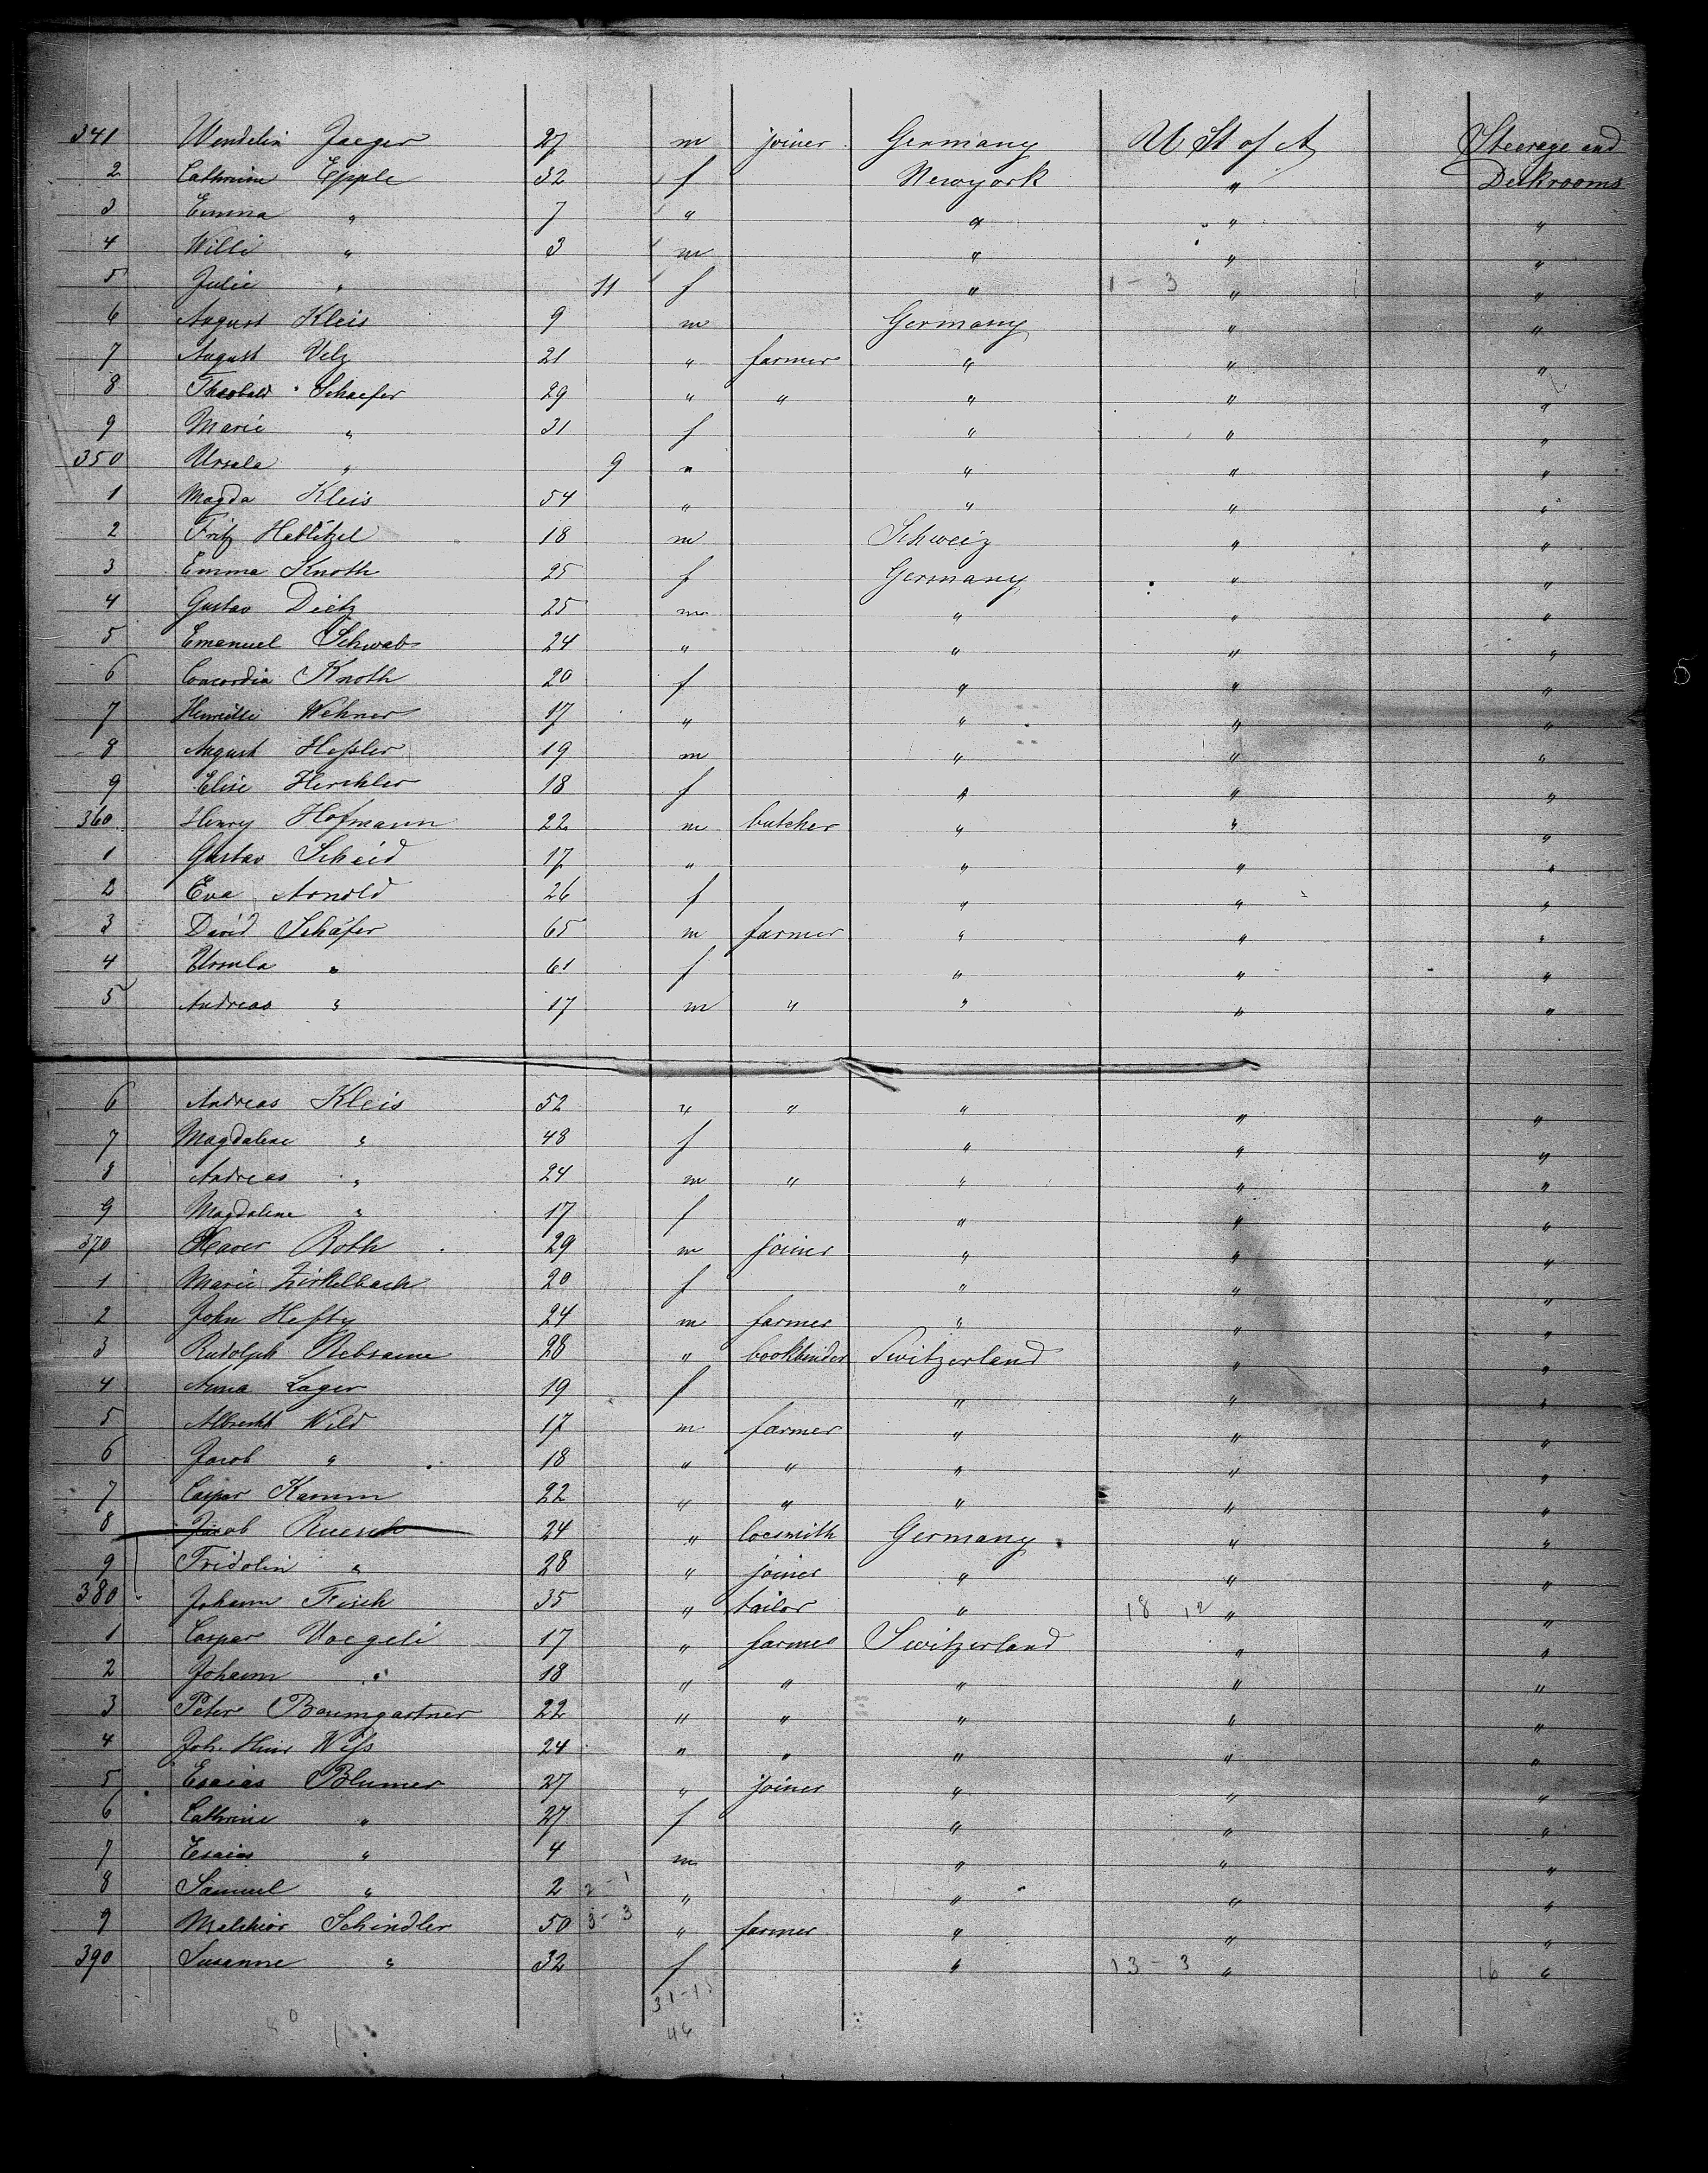 341 Wendelin Jaeger 27 m joiner Germany U St of A Steerage and
2 Cathrine Epple 32 f Newyork " Deckrooms
3 Emma " 7 " " " "
4 Willi " 3 m " " "
5 Julie " 11 f " 1 - 3 " "
6 August Kleis 9 m Germany " "
7 August Velz 21 " farmer " " "
8 Theobald Schaefer 29 " " " " "
9 Marie " 31 f " " "
350 Ursula " 9 " " " "
1 Magda Kleis 54 " " " "
2 Fritz Heblitzel 18 m Schweiz " "
3 Emma Knoth 25 f Germany " "
4 Gustav Dietz 25 m " " "
5 Emanuel Schwab 24 " " " "
6 Concordia Knoth 20 f " " "
5
7 Henriette Wehner 17 " " " "
8 August Heßler 19 m " " "
9 Elise Herchler 18 f " " "
360 Henry Hofmann 22 m butcher " " "
1 Gustav Scheid 17 " " " "
2 Eva Arnold 26 f " " "
3 David Schäfer 65 m farmer " " "
4 Ursula " 61 f " " "
5 Andreas " 17 m " " " "
6 Andreas Kleis 52 " " " " "
7 Magdalene " 48 f " " "
8 Andreas " 24 m " " " "
9 Magdalene " 17 f " " "
370 Xaver Roth 29 m joiner " " "
1 Marie Zirkelbach 20 f " " "
2 John Hefty 24 m farmer " " "
3 Rudolph Rebsame 28 " bookbinder Switzerland " "
4 Anna Lager 19 f " " "
5 Albrecht Wild 17 m farmer " " "
6 Jacob " 18 " " " " "
7 Caspar Kamm 22 " " " " "
8 Jacob Ruesch 24 " locsmith Germany " "
9 Fridolin " 28 " joiner " " "
380 Johann Fisch 35 " tailor " 18 12 " "
1 Caspar Voegeli 17 " farmer Switzerland " "
2 Johann " 18 " " " " "
3 Peter Baumgartner 22 " " " " "
4 Joh. Heinr Wiß 24 " " " " "
5 Esaias Blumer 27 " joiner " " "
6 Cathrine " 27 f " " "
7 Esaias " 4 m " " "
8 Samuel " 2 2 - 1 " " " "
9 Melchior Schindler 50 3 - 3 " farmer " " "
390 Susanne " 32 f " 13 - 3 " 16 "
31-15
46